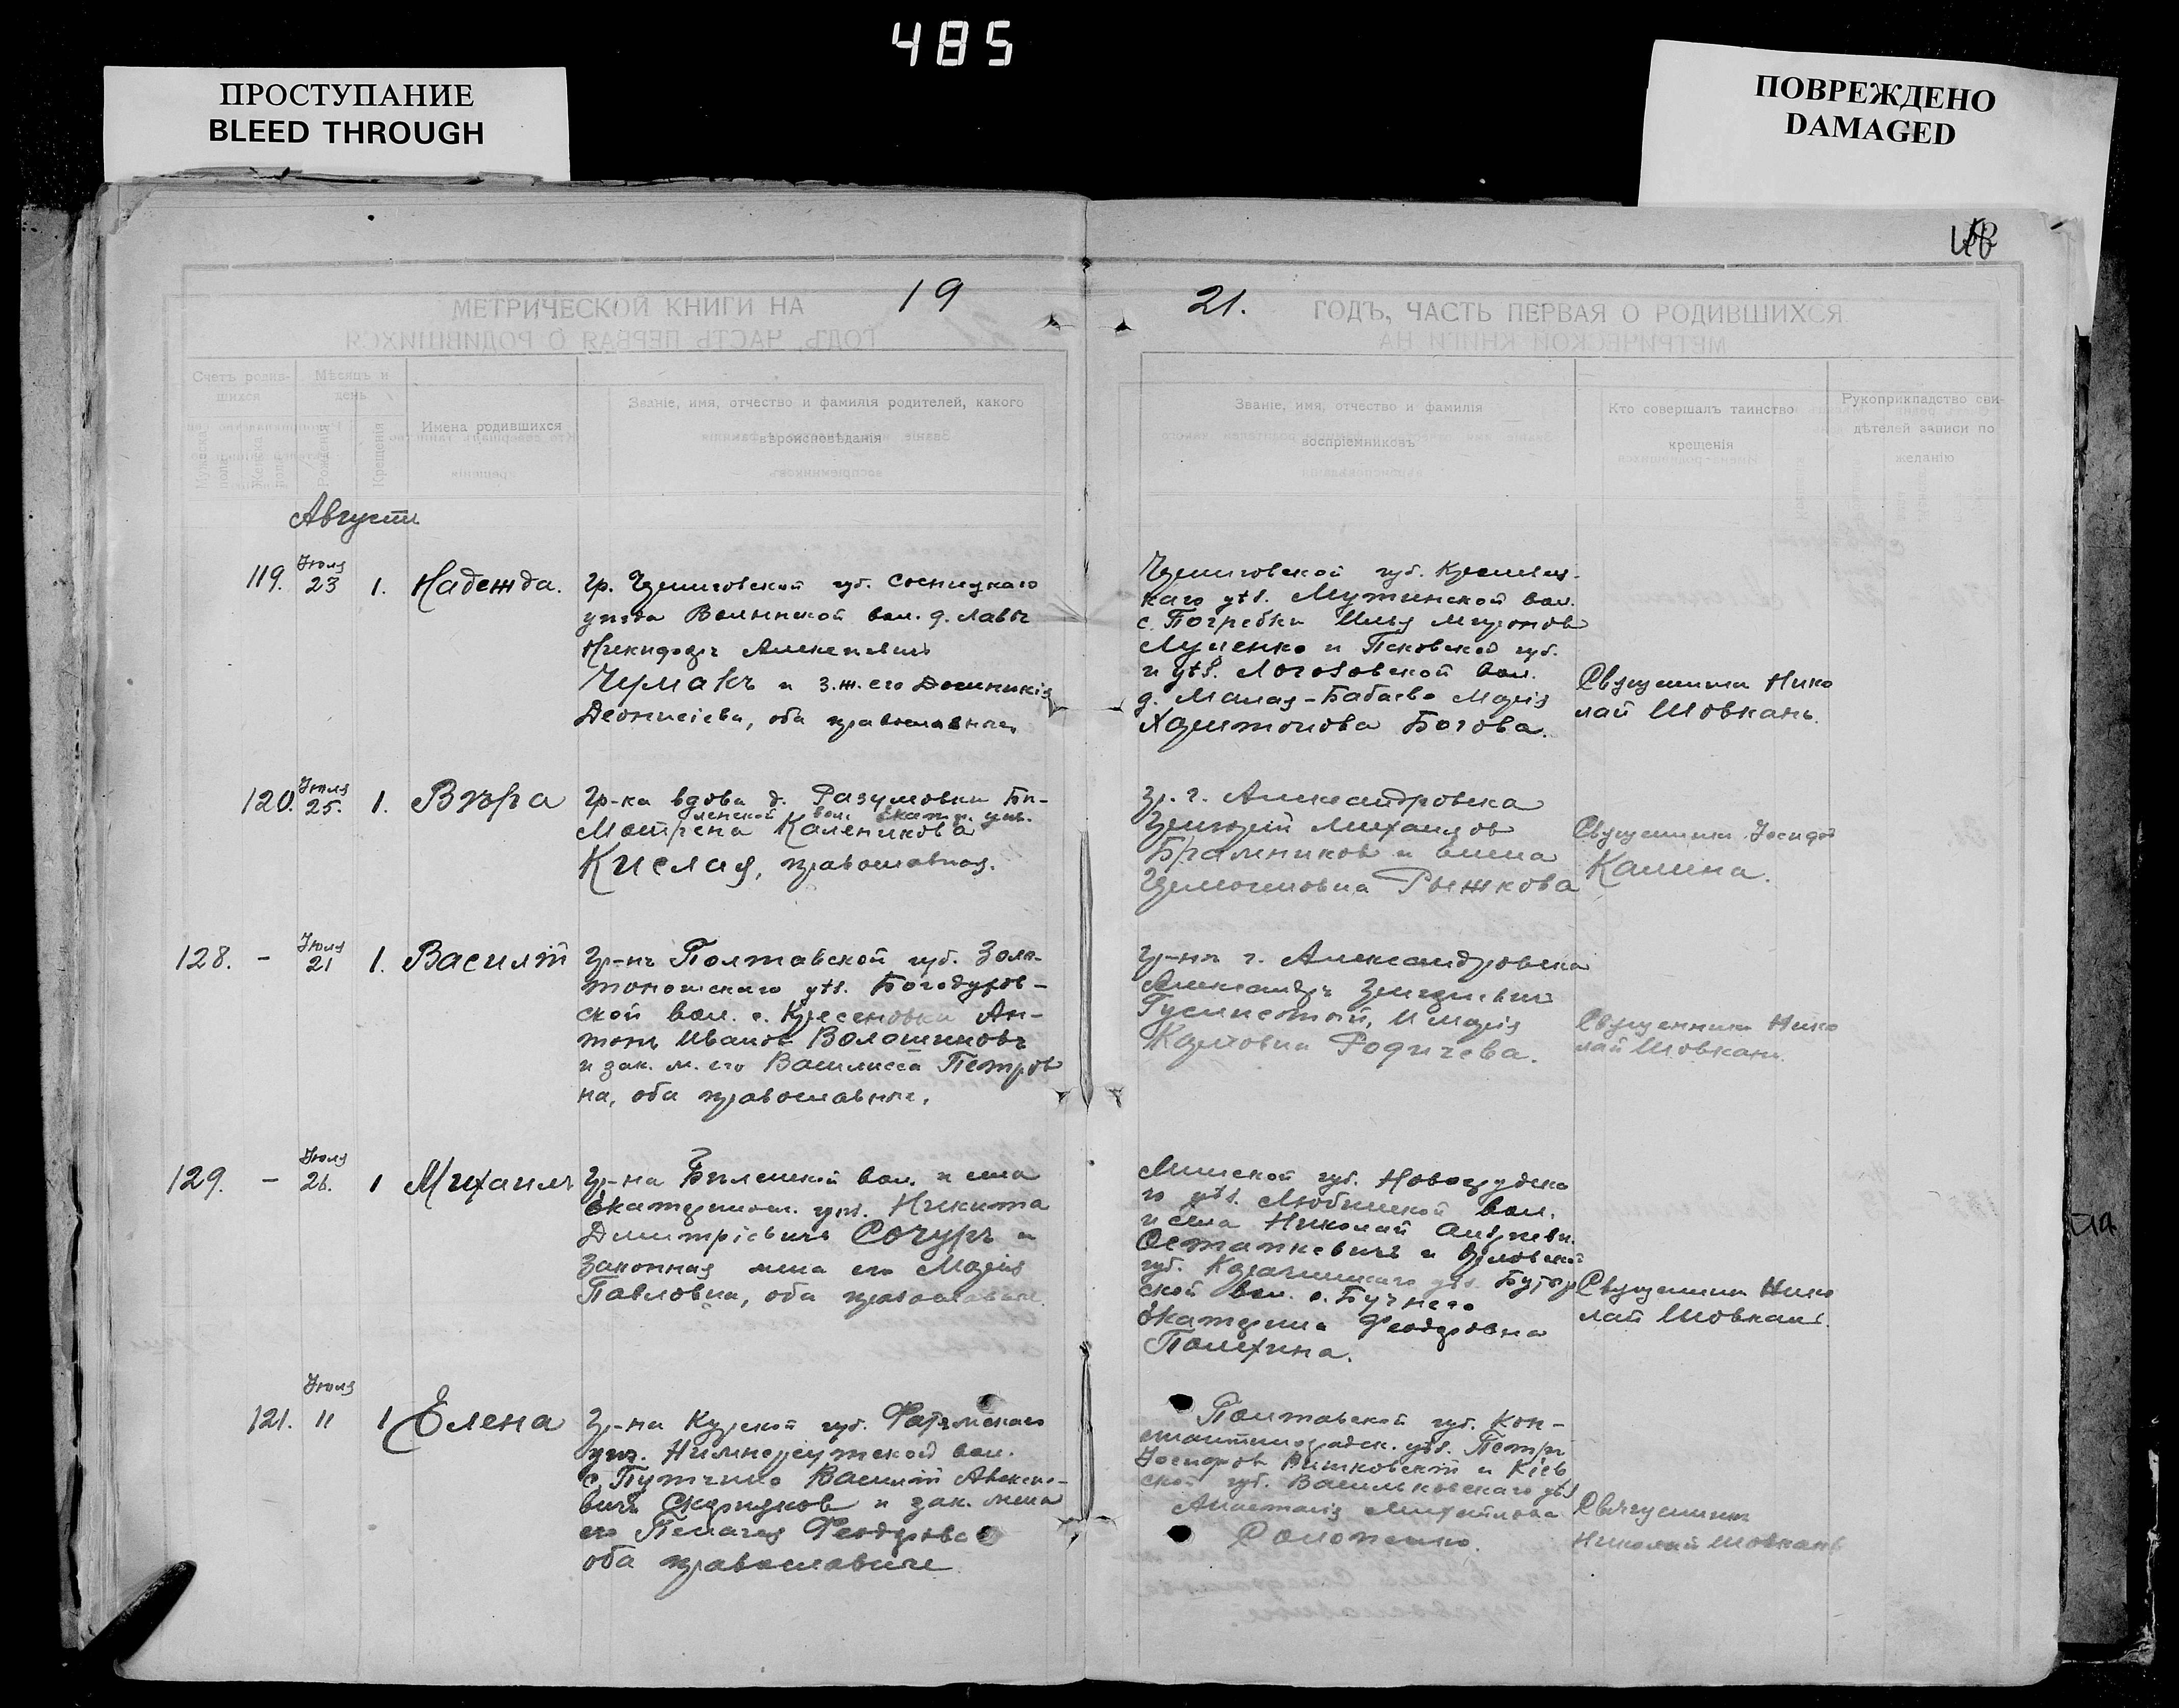 485
ПРОСТУПАНИЕ
BLEED THROUGH
ПОВРЕЖДЕНО
DAMAGED
МЕТРИЧЕСКОЙ КНИГИ НА 19
21. ГОДЪ, ЧАСТЬ ПЕРВАЯ О РОДИВШИХСЯ
Счетъ родив-
шихся
Мужеска
пола
Женска
пола
Мѣсяцъ и
день
Рожденія
Крещенія
Имена родившихся
Званіе, имя, отчество и фамилія родителей, какого
вѣроисповѣданія
Званіе, имя, отчество и фамилія
воспріемниковъ
Кто совершалъ таинство
крещенія
Рукоприкладство сви-
дѣтелей записи по
желанію
Августъ
119.
Іюля
23
1.
Надежда.
Гр. Черниговской губ. Сосницкаго
уѣзда Волынской вол. д. Лавы
Никифоръ Алексѣевичъ
Чумакъ и з. ж. его Домникія
Деонисіева, оба православные
Черниговской губ. Кролевец-
каго уѣз. Мутинской вол.
с. Погребки Илья Миронов
Луценко и Псковской губ.
и уѣз. Логозовской вол.
д. Малая-Бабаево Марія
Харитонова Богова.
Священникъ Нико
лай Шовкань.
120.
Іюля
25.
1.
Вѣра
Гр-ка вдова д. Разумовки Би-
ленской вол. Екатер. уѣз.
Мотрена Каленикова
Кислая, православная.
гр. г. Александровска
Григорій Михайлов
Бральников и Анна
Рыжкова
Священникъ Іосифъ
Калина.
128.
-
Іюля
21
1.
Василій
Гр-нъ Полтавской губ. Золо-
тоношскаго уѣз. Богодухов-
ской вол. с. Кресеновки Ан-
тонъ Иванов Волошиновъ
и зак. ж. его Василиса Петров
на, оба православные.
Гр-нъ г. Александровска
Александръ Григорьевич
Гуслистый, и Марія
Карповна Родичева.
Священникъ Нико
лай Шовкань.
129.
-
Іюля
26.
1
Михаилъ
Гр-на Биленькой вол. и села
Екатеринос. губ. Никита
Дмитріевичъ Сочуръ и
Законная жена его Марія
Павловна, оба православные.
Минской губ. Новогрудска
го уѣз. Любчинской вол.
и села Николай Андреев.
Остапкевичъ и Орловской
губ. Карачинскаго уѣз.
ской вол. с. Бучнего
Екатерина Феодоровна
Полехина.
Священникъ Нико
лай Шовкань.
121.
Іюля
11
1
Елена
Гр-на Курской губ. Фатежскаго
уѣз. Нижнереутской вол.
с. Путчино Василій Алексѣе-
вичъ и зак. жена
его Пелагея Феодорова
оба православные
Полтавской губ. Кон-
стантиноградск. уѣз. Петръ
Іосифов Витковскій и Кіев
ской губ. Васильковскаго уѣз
Анастасія Михайлова
Священникъ
Николай Шовкань